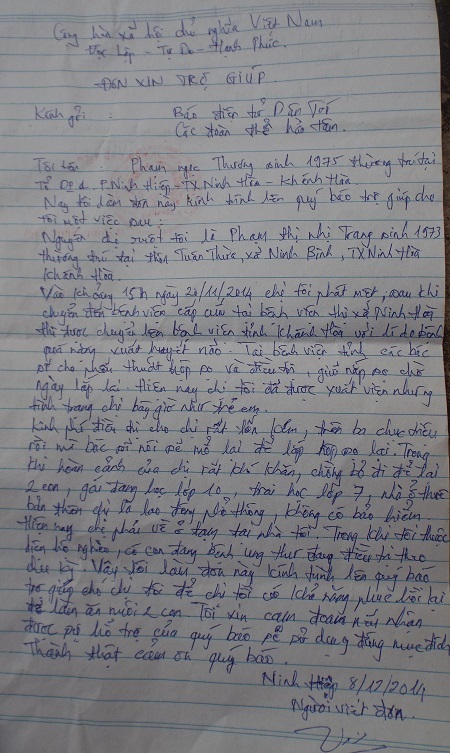 Cộng hòa xã hội chủ nghĩa Việt Nam
Độc lập - Tự Do - Hạnh Phúc.
ĐƠN XIN TRỢ GIÚP
Kính gửi : Báo điện tử Dân Trí
Các đoàn thể hảo tâm.
Tôi tên Phạm ngọc Thương sinh 1975 thường trú tại
Tổ DP P.Ninh Hiệp - TX Ninh Hòa - Khánh Hòa.
Nay tôi làm đơn này kính trình lên quý báo trợ giúp cho
tôi một việc sau:
Nguyên chị ruột tôi là Phạm thị nhị Trang sinh 1973
thường trú tại thôn Tuân Thừa, xã Ninh Bình, TX Ninh Hòa
Khánh Hòa.
Vào khoảng 15h ngày 20/11/2014 chị tôi phát mệt, sau khi
chuyển đến bệnh viện cấp cứu tại bệnh viện thị xã Ninh Hòa
thì được chuyển lên bệnh viện tỉnh Khánh Hòa với lí do bệnh
quá nặng xuất huyết não. Tại bệnh viện tỉnh các bác
sĩ cho phẩu thuật hộp sọ và điều trị, giữ nắp sọ chờ
ngày lắp lại. Hiện nay chị tôi đã được xuất viện nhưng
tình trạng chị bây giờ như trẻ em.
Kinh phí điều trị cho chị rất tốn kém, trên ba chục triệu
rồi mà bác sĩ nói sẽ mổ lại để lắp hộp sọ lại. Trong
khi hoàn cảnh của chị rất khó khăn, chồng bỏ đi để lại
2 con, gái đang học lớp 10, trai học lớp 7, nhà ở thuê
bản thân chị là lao động phổ thông, không có bảo hiểm.
Hiện nay chị phải về ở tạm tại nhà tôi. Trong khi tôi thuộc
diện hộ nghèo, có con đang bệnh ung thư đang điều trị theo
định kỳ. Vậy tôi làm đơn này kính trình lên quý báo
trợ giúp cho chị tôi để chị tôi có khả năng phục hồi lại
để làm ăn nuôi 2 con. Tôi xin cam đoan nếu nhận
được sự hỗ trợ của quý báo sẽ sử dụng đúng mục đích
Thành thật cảm ơn quý báo.
Ninh Hiệp 8/12/2014
Người viết đơn.